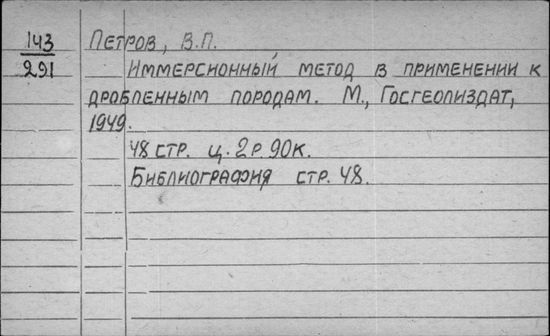 143 ПЕТРОВ, В.П.
291 ИММЕРСИОННЫЙ МЕТОД В ПРИМЕНЕНИИ К
ДРОБЛЕННЫМ ПОРОДАМ. М., ГОСГЕОЛИЗДАТ,
1949.
48 СТР. Ц. 2 Р. 90К.
БИБЛИОГРАФИЯ СТР. 48.